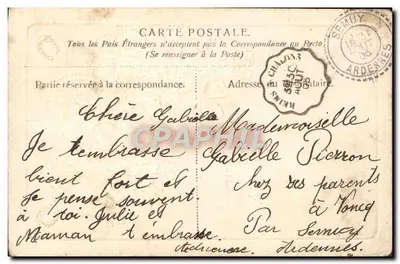 CARTE POSTALE.
Tous les Pays Étrangers n'acceptent pas la Correspondance au Recto
(Se renseigner à la Poste)
Partie réservée à la correspondance.
Adresse du destinataire.
SEMUY
ARDENNES
REIMS A CHALONS
Chère Gabrielle
Je t'embrasse
bient fort et
Je pense souvent
à toi. Julie et
Maman t'embrasse
Mademoiselle
Gabrielle Pierron
chez ses parents
à Voncq
Par Semuy
Ardennes.